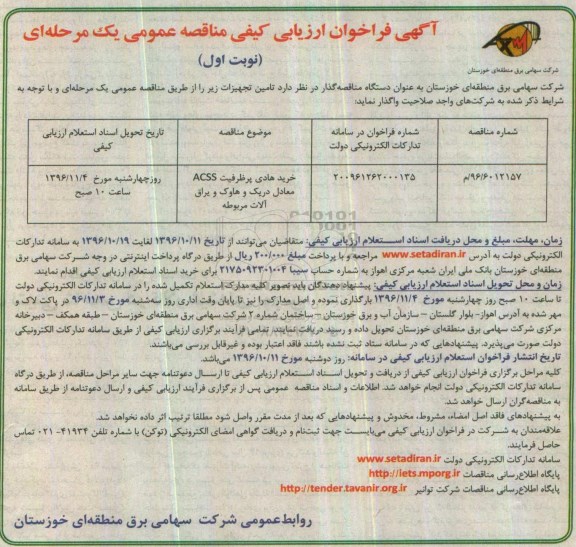 آگهی فراخوان ارزیابی کیفی مناقصه عمومی یک مرحله‌ای
(نوبت اول)
شرکت سهامی برق منطقه‌ای خوزستان
شرکت سهامی برق منطقه‌ای خوزستان به عنوان دستگاه مناقصه‌گذار در نظر دارد تامین تجهیزات زیر را از طریق مناقصه عمومی یک مرحله‌ای و با توجه به
شرایط ذکر شده به شرکت‌های واجد صلاحیت واگذار نماید:
شماره مناقصه
شماره فراخوان در سامانه تدارکات الکترونیکی دولت
موضوع مناقصه
تاریخ تحویل اسناد استعلام ارزیابی کیفی
۹۶/۶۰۱۲۱۵۷/م
۲۰۰۹۶۱۲۶۲۰۰۰۱۳۵
خرید هادی پرظرفیت ACSS
معادل دریک و هاوک و یراق
آلات مربوطه
روزچهارشنبه مورخ ۱۳۹۶/۱۱/۴
ساعت ۱۰ صبح
زمان، مهلت، مبلغ و محل دریافت اسناد استعلام ارزیابی کیفی: متقاضیان می‌توانند از تاریخ ۱۳۹۶/۱۰/۱۱ لغایت ۱۳۹۶/۱۰/۱۹ به سامانه تدارکات
الکترونیکی دولت به آدرس www.setadiran.ir مراجعه و با پرداخت مبلغ ۲۰۰/۰۰۰ ریال از طریق درگاه پرداخت اینترنتی در وجه شرکت سهامی برق
منطقه‌ای خوزستان بانک ملی ایران شعبه مرکزی اهواز به شماره حساب سیبا ۲۱۷۵۰۹۲۳۰۱۰۰۴ برای خرید اسناد استعلام ارزیابی کیفی اقدام نمایند.
زمان و محل تحویل اسناد استعلام ارزیابی کیفی: پیشنهاددهندگان باید تصویر کلیه مدارک استعلام تکمیل شده را در سامانه تدارکات الکترونیکی دولت
تا ساعت ۱۰ صبح روز چهارشنبه مورخ ۱۳۹۶/۱۱/۴ بارگذاری نموده و اصل مدارک را نیز تا پایان وقت اداری روز سه‌شنبه مورخ ۹۶/۱۱/۳ در پاکت لاک و
مهر شده به آدرس اهواز- بلوار گلستان – سازمان آب و برق خوزستان – ساختمان شماره ۲ شرکت سهامی برق منطقه‌ای خوزستان – طبقه همکف – دبیرخانه
مرکزی شرکت سهامی برق منطقه‌ای خوزستان تحویل داده و رسید دریافت نمایند. تمامی فرآیند برگزاری ارزیابی کیفی از طریق سامانه تدارکات الکترونیکی
دولت صورت می‌پذیرد. پیشنهادهایی که در سامانه ستاد ثبت نشده باشند فاقد اعتبار بوده و غیرقابل بررسی می‌باشند.
تاریخ انتشار فراخوان استعلام ارزیابی کیفی در سامانه: روز دوشنبه مورخ ۱۳۹۶/۱۰/۱۱ می‌باشد.
کلیه مراحل برگزاری فراخوان ارزیابی کیفی از دریافت و تحویل اسناد استعلام ارزیابی کیفی تا ارسال دعوتنامه جهت سایر مراحل مناقصه، از طریق درگاه
سامانه تدارکات الکترونیکی دولت انجام خواهد شد. اطلاعات و اسناد مناقصه عمومی پس از برگزاری فرآیند ارزیابی کیفی و ارسال دعوتنامه از طریق سامانه
به مناقصه‌گران ارسال خواهد شد.
به پیشنهادهای فاقد اصل امضاء، مشروط، مخدوش و پیشنهادهایی که بعد از مدت مقرر واصل شود مطلقا ترتیب اثر داده نخواهد شد.
علاقه‌مندان به شرکت در فراخوان ارزیابی کیفی می‌بایست جهت ثبت‌نام و دریافت گواهی امضای الکترونیکی (توکن) با شماره تلفن ۴۱۹۳۴-۰۲۱ تماس
حاصل فرمایند.
سامانه تدارکات الکترونیکی دولت www.setadiran.ir
پایگاه اطلاع‌رسانی مناقصات http://iets.mporg.ir
پایگاه اطلاع‌رسانی مناقصات شرکت توانیر http://tender.tavanir.org.ir
روابط‌عمومی شرکت سهامی برق منطقه‌ای خوزستان